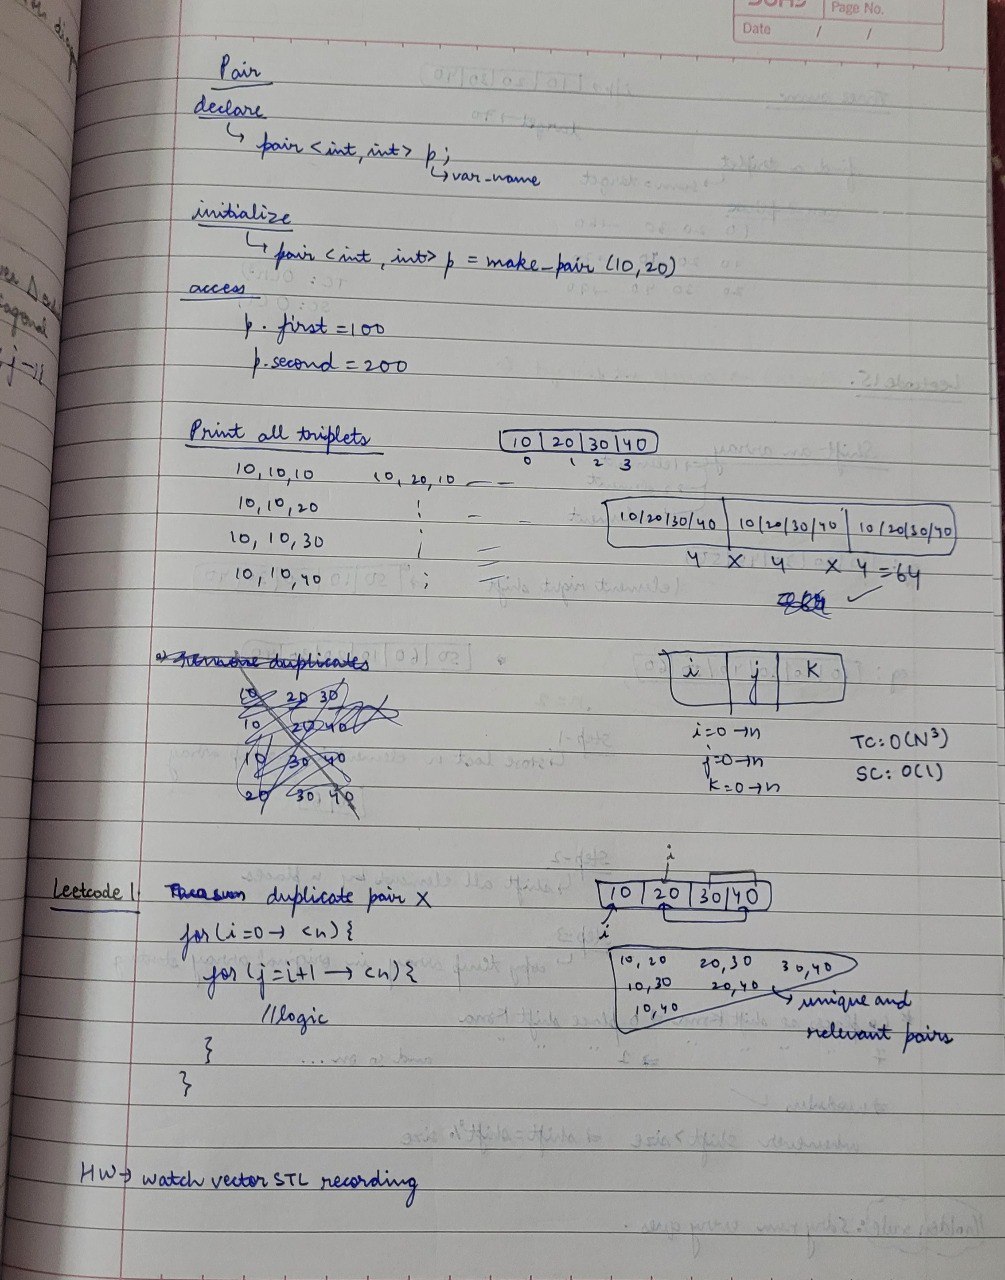 Page No.
Date / /
Pair
declare
↳ pair <int, int> p;
↳ var_name
initialize
↳ pair <int, int> p = make_pair (10,20)
access
p. first = 100
p. second = 200
Print all triplets
10 | 20 | 30 | 40
0 1 2 3
10, 10, 10 10, 20, 10 — —
10, 10, 20
10, 10, 30
10, 10, 40
10/20/30/40 | 10/20/30/40 | 10/20/30/40
4 X 4 X 4 = 64 ✓
remove duplicates
10 20 30
10 20 40
10 30 40
20 30 40
i | j | K
i=0→n
j=0→n
K=0→n
TC: O(N³)
SC: O(1)
Leetcode 1 duplicate pair X
for (i=0 → <n) {
for (j=i+1 → <n) {
//logic
}
}
i
10 | 20 | 30 | 40
i
10, 20 20, 30 30, 40
10, 30 20, 40
10, 40
↳ unique and
relevant pairs
HW → watch vector STL recording